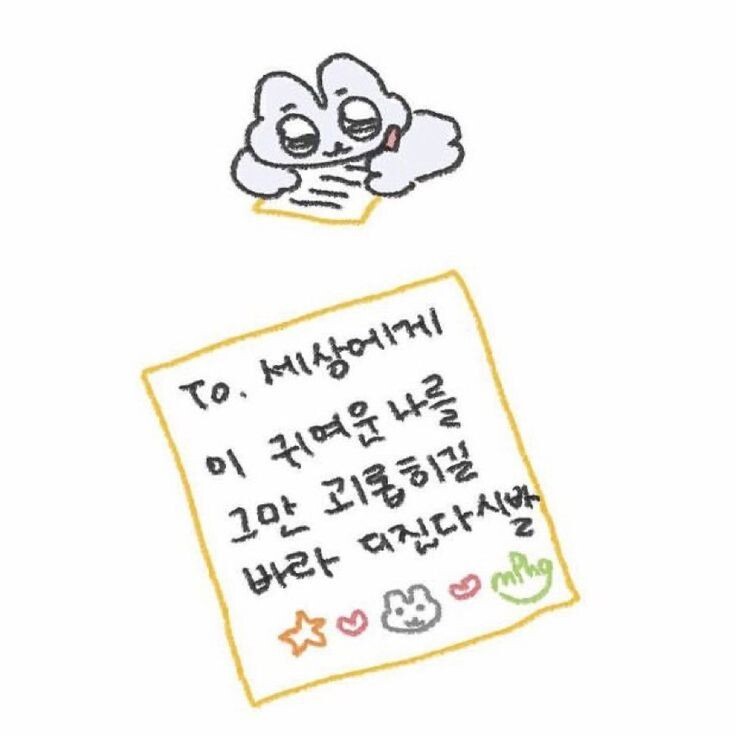 To. 세상에게
이 귀여운 나를
그만 괴롭히길
바라 디진다 시발
mphg